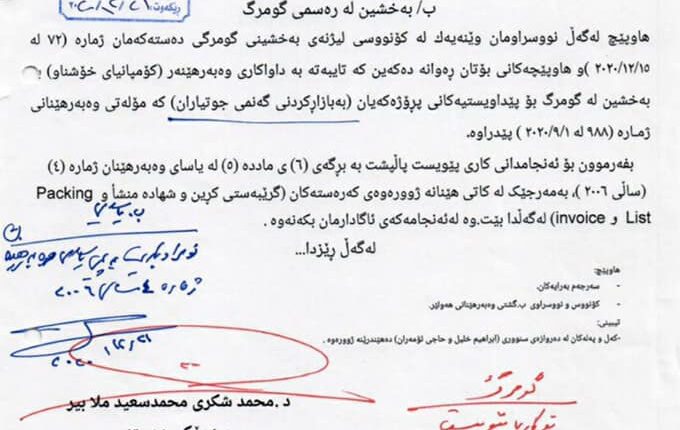 ب/ بەخشین لە رەسمی گومرگ
هاوپێچ لەگەڵ نووسراومان وێنەیەك لە کۆنووسی لیژنەی بەخشینی گومرگی دەستەکەمان ژمارە (٧٢ لە
٢٠٢٠/١٢/١٥ )و هاوپێچەکانی بۆتان ڕەوانە دەکەین کە تایبەتە بە داواکاری وەبەرهێنەر (کۆمپانیای خۆشناو) بە
بەخشین لە گومرگ بۆ پێداویستیەکانی پڕۆژەکەیان (بەبازاڕکردنی گەنمی جوتیاران) کە مۆڵەتی وەبەرهێنانی
ژمارە (٩٨٨ لە ٢٠٢٠/٩/١ ) پێدراوە.
بفەرموون بۆ ئەنجامدانی کاری پێویست پاڵپشت بە بڕگەی (٦) ی ماددە (٥) لە یاسای وەبەرهێنان ژمارە (٤)
(ساڵی ٢٠٠٦ )، بەمەرجێک لە کاتی هێنانە ژوورەوەی کەرەستەکان (گرێبەستی کڕین و شهادە منشأ و Packing
List و invoice) لەگەڵدا بێت.وە لەئەنجامەکەی ئاگادارمان بکەنەوە .
لەگەڵ ڕێزدا...
هاوپێچ:
- سەرجەم بەرایەکان.
- کۆنووس و نووسراوی ب.گشتی وەبەرهێنانی هەولێر.
تێبینی:
-کەل و پەلەکان لە دەروازەی سنووری (ابراهیم خلیل و حاجی ئۆمەران) دەهێندرێنە ژوورەوە .
د .محمد شکری محمدسعید ملا بیر
گومرگ